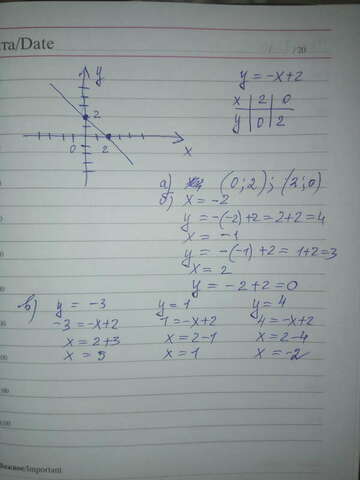 ата/Date
/20
y
y = -x+2
x 2 0
y 0 2
2
0 2
x
а) (0;2); (2;0)
б) x = -2
y = -(-2)+2 = 2+2 = 4
x = -1
y = -(-1)+2 = 1+2 = 3
x = 2
y = -2+2 = 0
в) y = -3 y = 1 y = 4
-3 = -x+2 1 = -x+2 4 = -x+2
x = 2+3 x = 2-1 x = 2-4
x = 5 x = 1 x = -2
Важное/Important